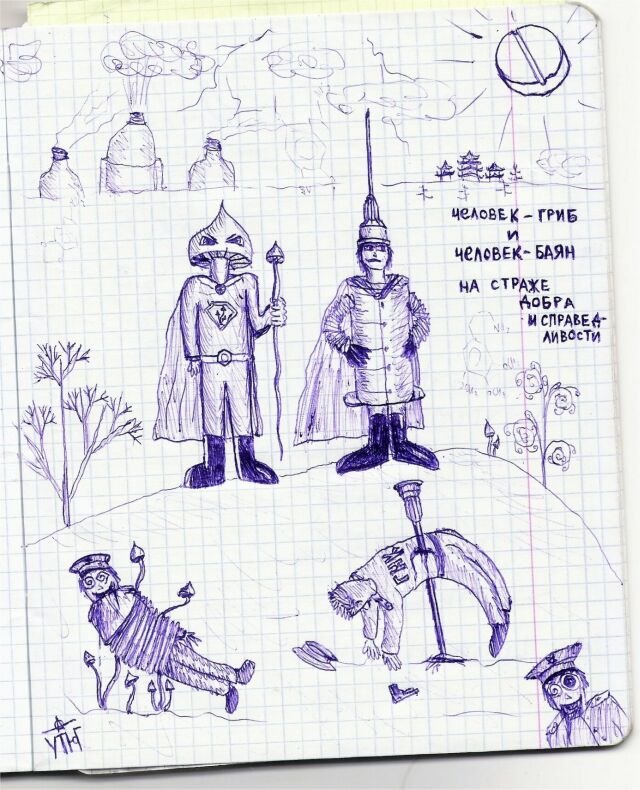 ЧЕЛОВЕК-ГРИБ
И
ЧЕЛОВЕК-БАЯН
НА СТРАЖЕ
ДОБРА
И СПРАВЕД-
ЛИВОСТИ
ГНК